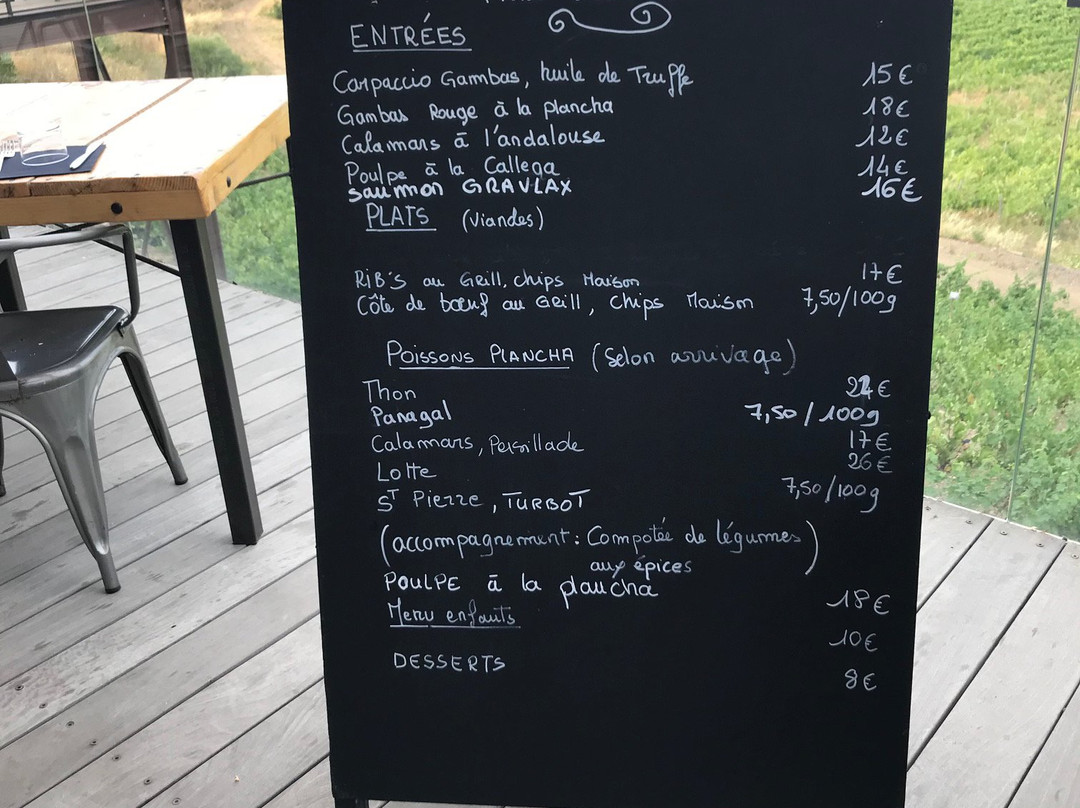 ENTRÉES
Carpaccio Gambas, huile de Truffe 15€
Gambas Rouge à la plancha 18€
Calamars à l'andalouse 12€
Poulpe à la Callega 14€
saumon GRAVLAX 16€
PLATS (viandes)
RIB'S au Grill, chips Maison 17€
Côte de bœuf au Grill, chips Maison 7,50/100g
POISSONS PLANCHA (Selon arrivage)
Thon
Paragal 7,50/100g
Calamars, Persillade 17€
Lotte 26€
ST Pierre, TURBOT 7,50/100g
(accompagnement: Compotée de légumes
aux épices)
POULPE à la plancha 18€
Menu enfants 10€
DESSERTS 8€